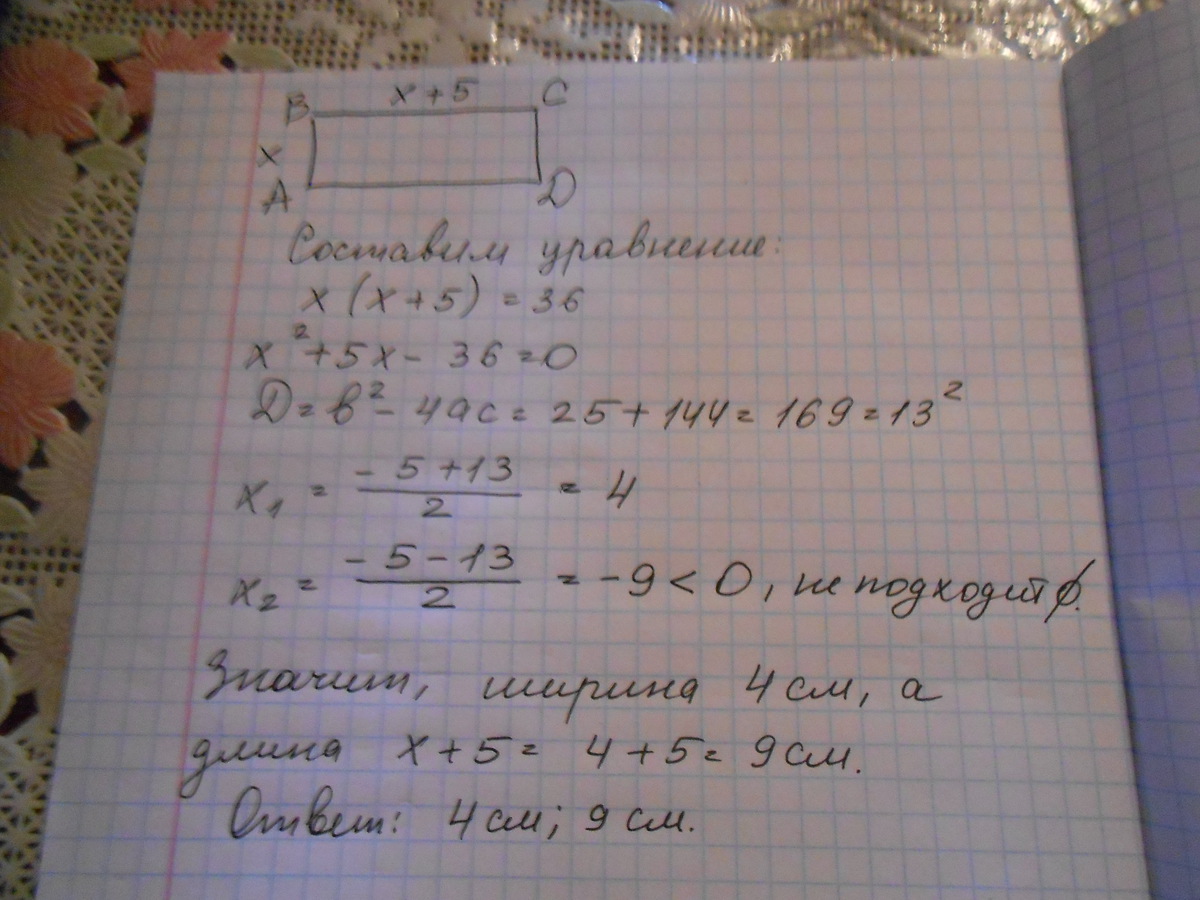 B x+5 C
x
A D
Составим уравнение:
x(x+5)=36
x²+5x-36=0
D=b²-4ac=25+144=169=13²
x₁ = (-5+13)/2 = 4
x₂ = (-5-13)/2 = -9<0, не подходит
Значит, ширина 4 см, а
длина x+5= 4+5= 9 см.
Ответ: 4 см; 9 см.